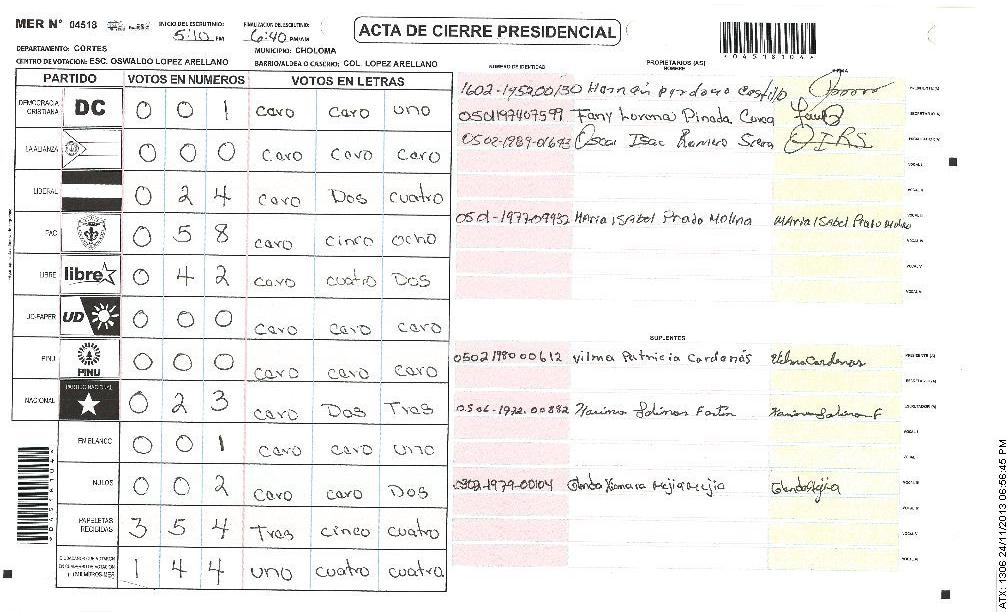 MER N° 04518
INICIO DEL ESCRUTINIO: 5:10 PM
FINALIZACION DEL ESCRUTINIO: 6:40 PM/AM
ACTA DE CIERRE PRESIDENCIAL
04518104
DEPARTAMENTO: CORTES
MUNICIPIO: CHOLOMA
CENTRO DE VOTACION: ESC. OSWALDO LOPEZ ARELLANO
BARRIO/ALDEA O CASERIO: COL. LOPEZ ARELLANO
PARTIDO VOTOS EN NUMEROS VOTOS EN LETRAS
DEMOCRACIA CRISTIANA DC 0 0 1 caro caro uno
LA ALIANZA 0 0 0 caro caro caro
LIBERAL 0 2 4 caro Dos cuatro
PAC 0 5 8 caro cinco ocho
LIBRE libre 0 4 2 caro cuatro Dos
UD-FAPER UD 0 0 0 caro caro caro
PINU PINU 0 0 0 caro caro caro
NACIONAL PARTIDO NACIONAL 0 2 3 caro Dos Tres
EN BLANCO 0 0 1 caro caro uno
NULOS 0 0 2 caro caro Dos
PAPELETAS RECIBIDAS 3 5 4 Tres cinco cuatro
1 4 4 uno cuatro cuatro
NUMERO DE IDENTIDAD
PROPIETARIOS (AS)
NOMBRE
FIRMA
1602-1952-00130 Hernán
PRESIDENTE (A)
0501197407599 Fany Lorena Pineda
SECRETARIO (A)
0502-1989-01693 Oscar Isac Ramirez
ESCRUTADOR (A)
VOCAL I
VOCAL II
0501-1977-09932 MAria ISAbel Prado Molina MAria ISAbel Prado Molina
VOCAL III
VOCAL IV
VOCAL V
VOCAL VI
SUPLENTES
0502198000612 Vilma Patricia Cardenas Vilma Cardenas
PRESIDENTE (A)
SECRETARIO (A)
0506-1972-00882 Salinas
ESCRUTADOR (A)
VOCAL I
VOCAL II
0302-1979-00104 Glenda Xiomara Mejia Mejia Glenda Mejia
VOCAL III
VOCAL IV
VOCAL V
VOCAL VI
ATX: 1306 24/11/2013 06:56:45 PM